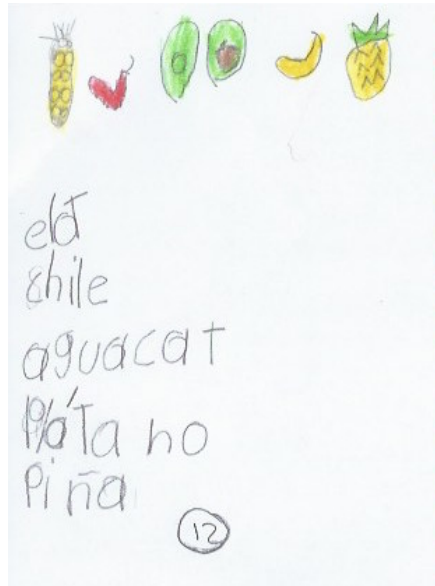 elot
chile
aguacat
Plátano
Piña
12